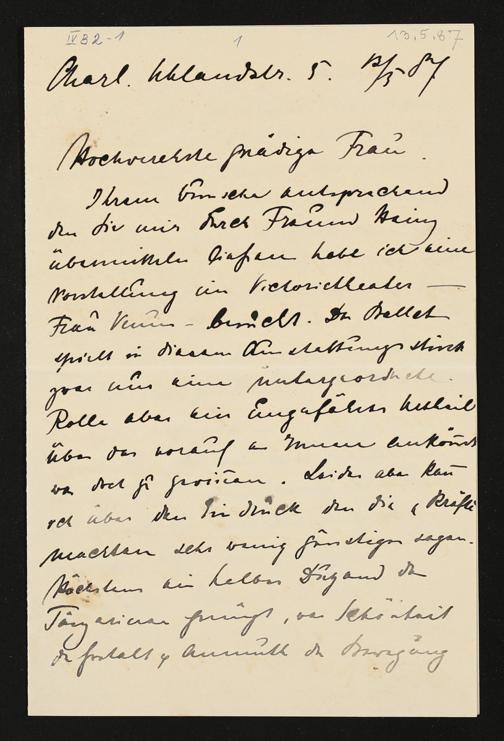 IV 82-1 1 13.5.87
Charl. Uhlandstr. 5. 13/5 87
Hochverehrte gnädige Frau.
Ihrem Wunsche entsprechend
den Sie mir durch Freund Hainz
übermitteln liessen habe ich eine
Vorstellung im Victoriatheater —
Frau Venus – besucht. Das Ballet
spielt in diesem Ausstattungsstück
zwar nur eine untergeordnete
Rolle aber ein Ungefähres Urtheil
über das worauf es Ihnen ankömmt
war doch zu gewinnen. Leider aber kann
ich über den Eindruck den die Kräfte
machten sehr wenig günstiges sagen.
Höchstens ein halbes Dutzend der
Tänzerinnen genügt, was Schönheit
der Gestalt & Anmuth der Bewegung